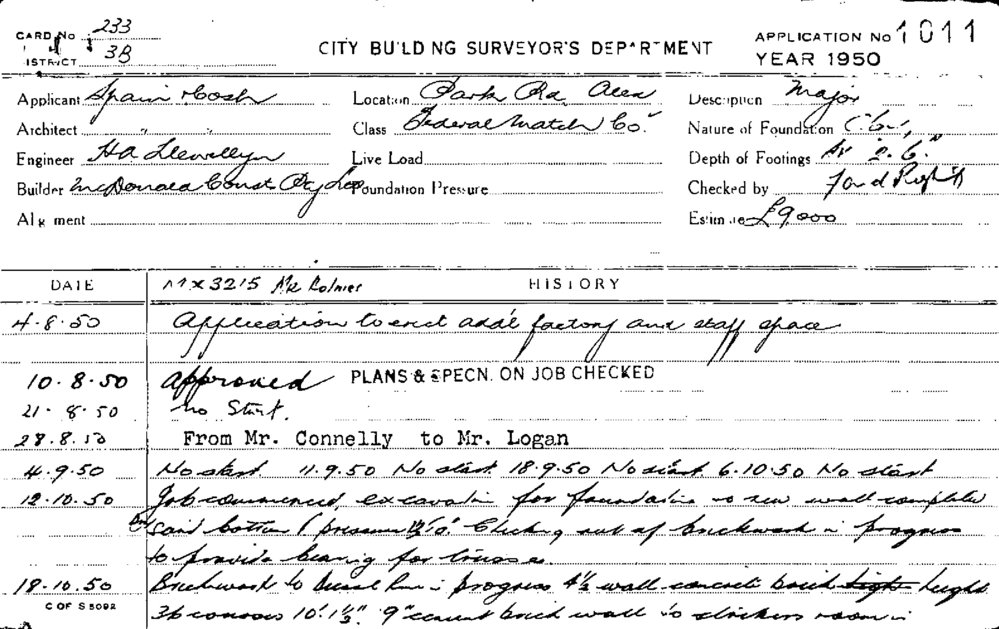 CARD No 233
DISTRICT 3B
CITY BUILDING SURVEYOR'S DEPARTMENT
APPLICATION No 1011
YEAR 1950
Applicant Spain & Cosh
Location Park Rd. Alex
Description Major
Architect " "
Class Federal Match Co.
Nature of Foundation
Engineer H A Llewellyn
Live Load
Depth of Footings Av 2'.6"
Builder McDonald Const Pty Ltd
Foundation Pressure
Checked by
Alignment
Estimate £9,000
DATE
MX3215 Mr
HISTORY
4.8.50 Application to erect add'l factory and staff space
10.8.50 Approved PLANS & SPECN. ON JOB CHECKED
21.8.50 No Start.
28.8.50 From Mr. Connelly to Mr. Logan
4.9.50 No start. 11.9.50 No start. 18.9.50 No start. 6.10.50 No start
12.10.50 Job commenced, excavation for foundation to new wall complete
bottom Cutting out of brickwork in progress
to provide bearing for trusses
18.10.50 Brickwork to in progress 4½ wall concrete brick height
36 courses 10'.1½". 9" cement brick wall to room in
C OF S 5092